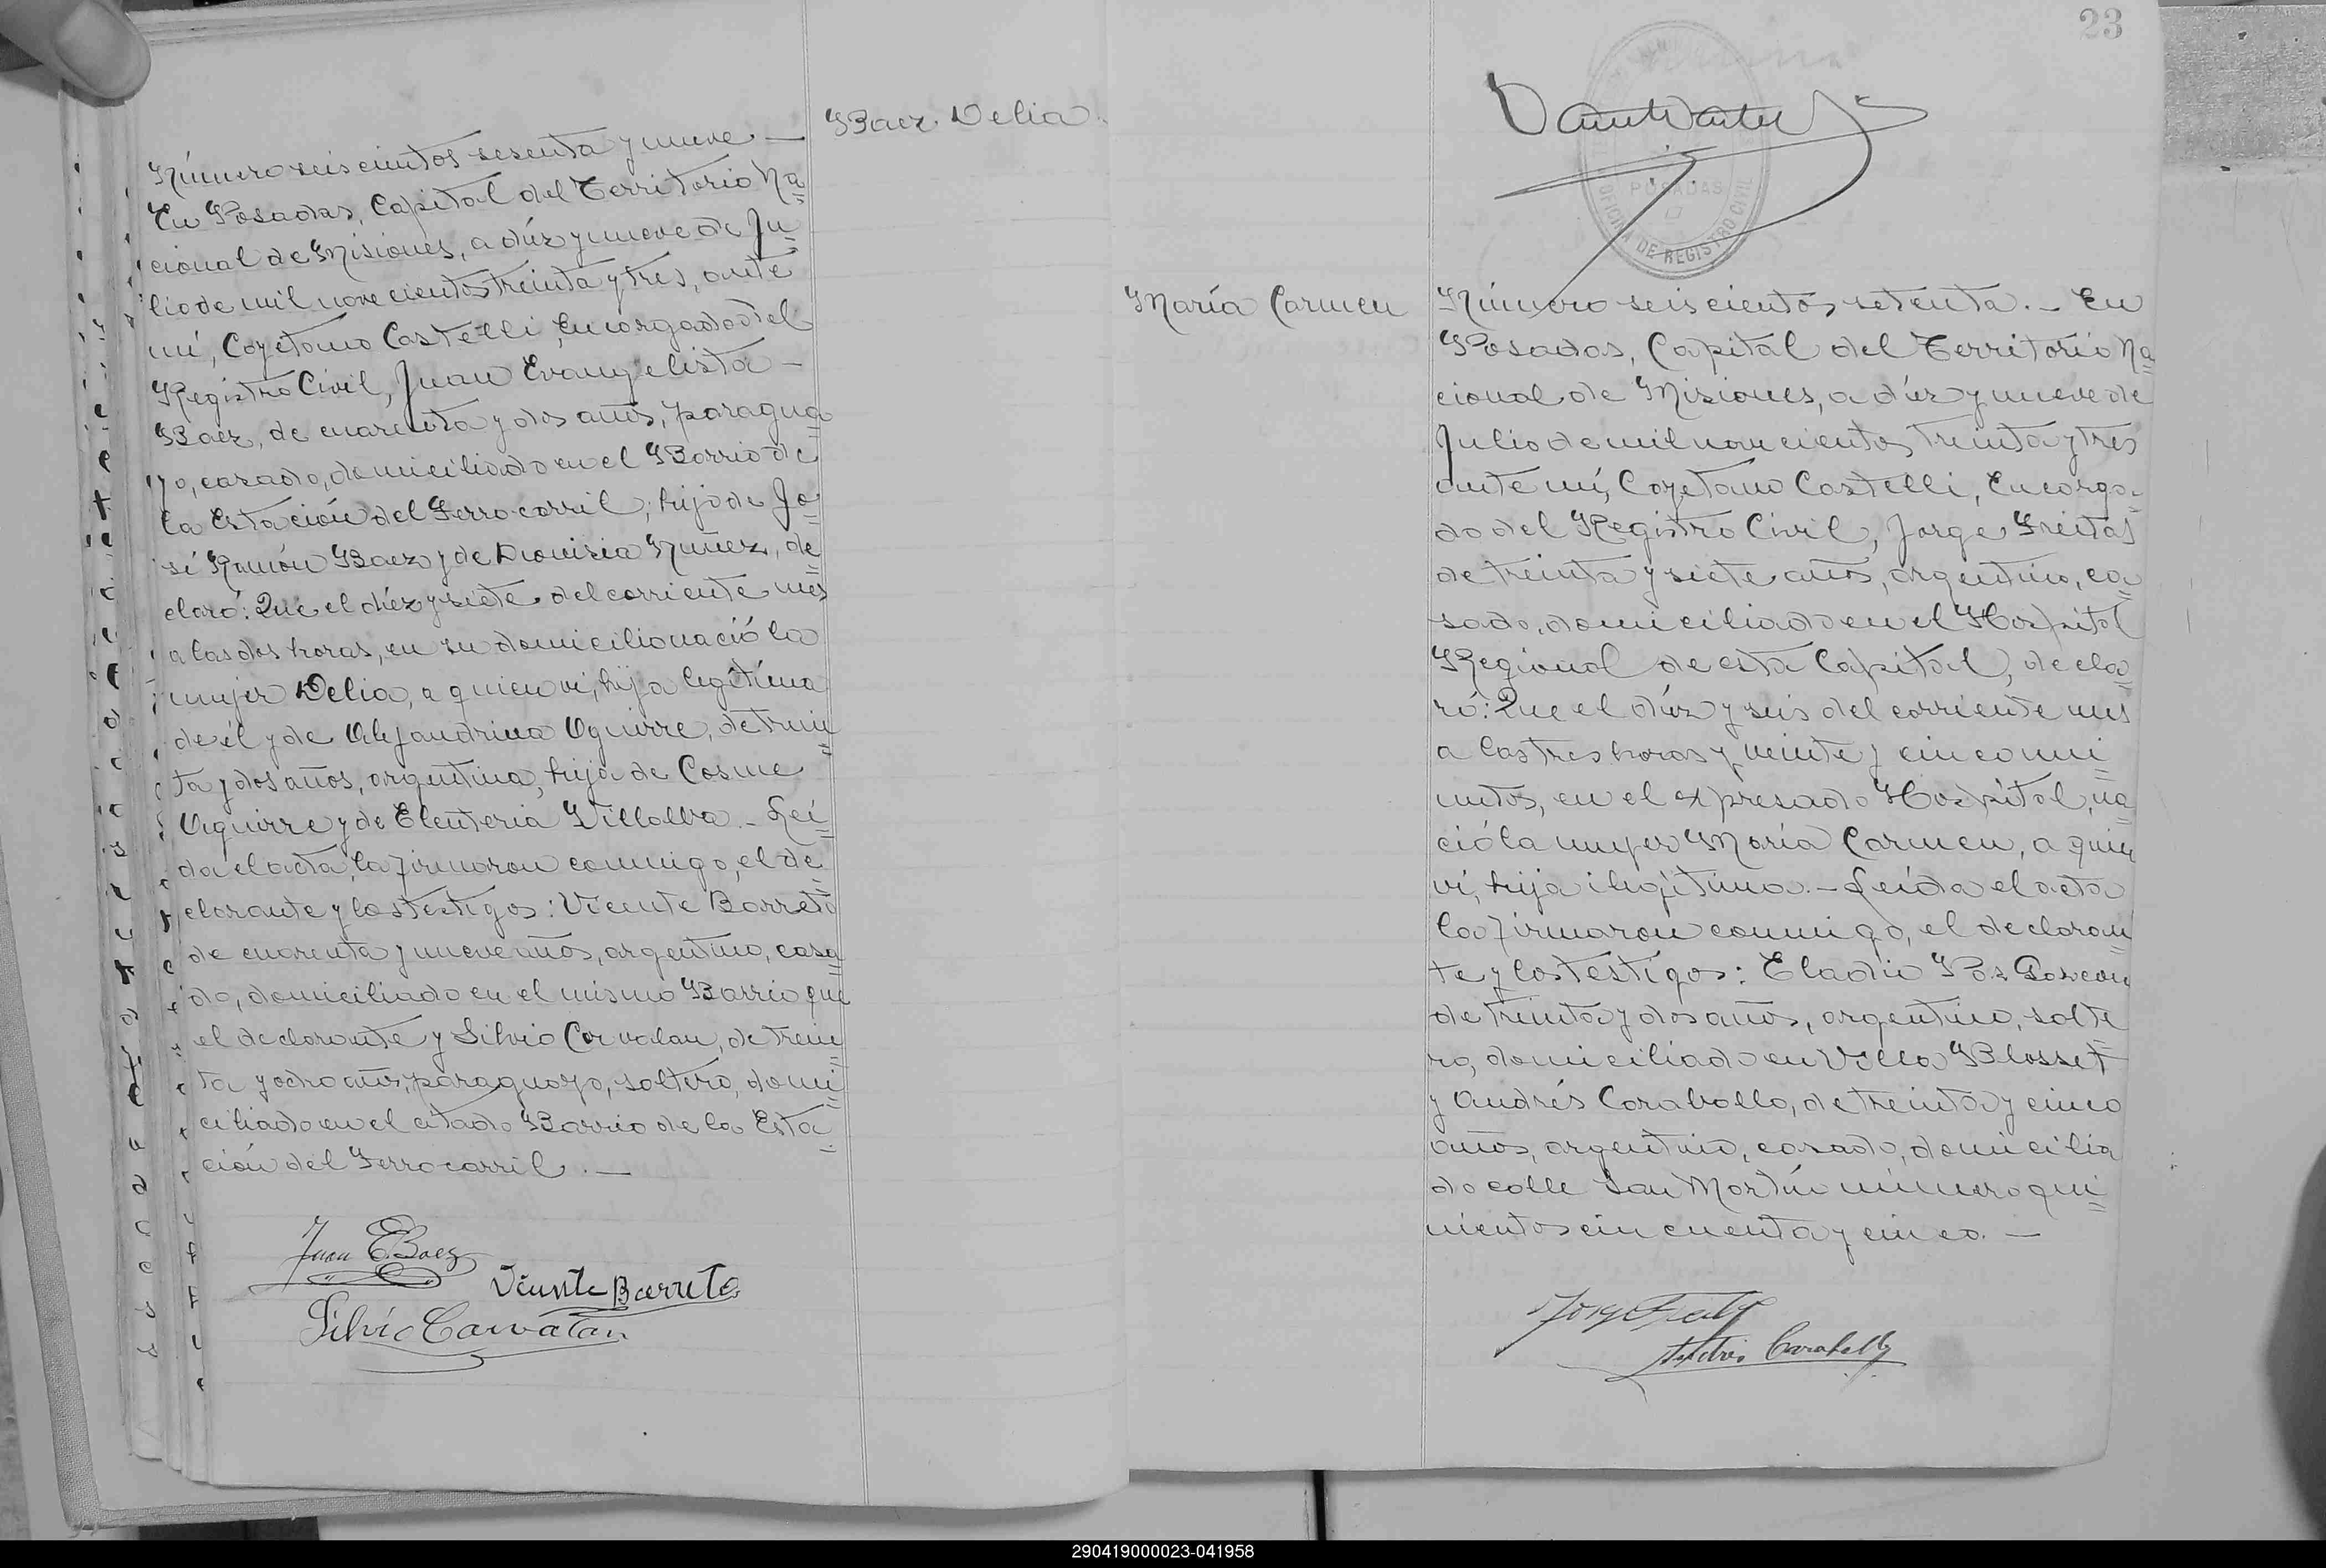 Baez Delia.
Número seiscientos sesenta y nueve —
En Posadas, Capital del Territorio Na
cional de Misiones, a diéz y nueve de Ju
lio de mil novecientos treinta y tres, ante
mí, Cayetano Castelli, Encargado del
Registro Civil, Juan Evangelista —
Baez, de cuarenta y dos años, paragua
yo, casado, domiciliado en el Barrio de
la Estación del Ferrocarril, hijo de Jo
sé Ramón Baez y de Dionisia Nuñez, de
claró: Que el diéz y siete del corriente mes
a las dos horas, en su domicilio nació la
mujer Delia, a quien ví, hija legítima
de él y de Alejandrina Aguirre, de trein
ta y dos años, argentina, hija de Cosme
Aguirre y de Eleuteria Villalba. - Leí
da el acta, la firmaron conmigo, el de
clarante y los testigos: Vicente Barreto
de cuarenta y nueve años, argentino, casa
do, domiciliado en el mismo Barrio que
el declarante y Silvio Corvalan, de trein
ta y ocho años, paraguayo, soltero, domi
ciliado en el citado Barrio de la Esta
ción del Ferrocarril. —
Juan E. Baez
Vicente Barreto
Silvio Carvalan
23
POSADAS
OFICINA DE REGISTRO CIVIL
María Carmen
Número seiscientos setenta. - En
Posadas, Capital del Territorio Na
cional de Misiones, a diéz y nueve de
Julio de mil novecientos treinta y tres
ante mí, Cayetano Castelli, Encarga-
do del Registro Civil, Jorge Freitas
de treinta y siete años, argentino, ca
sado, domiciliado en el Hospital
Regional de esta Capital, decla
ró: Que el diéz y seis del corriente mes
a las tres horas y veinte y cinco mi
nutos, en el expresado Hospital, na
ció la mujer María Carmen, a quien
ví, hija ilegítima. - Leída el acta
la firmaron conmigo, el declaran
te y los testigos: Eladio
de treinta y dos años, argentino, solte
ro, domiciliado en Villa Blosset
y Andrés Caraballo, de treinta y cinco
años, argentino, casado, domicilia
do calle San Martín número qui
nientos cincuenta y cinco. —
290419000023-041958